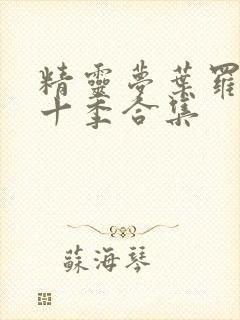 精靈夢葉羅
十季合集
蘇海琴